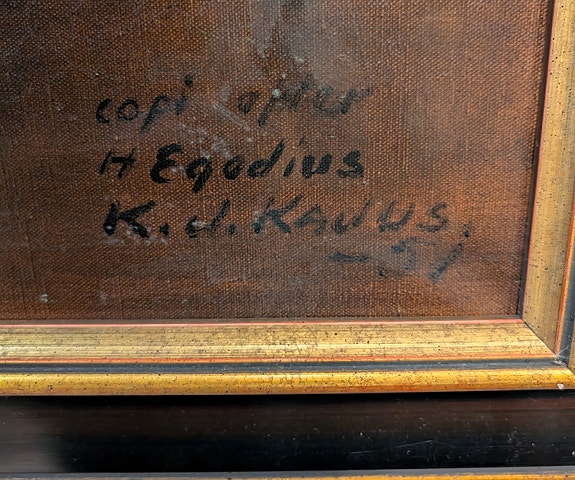 copi after
H Egodius
K. J. KAUUS.
- 51